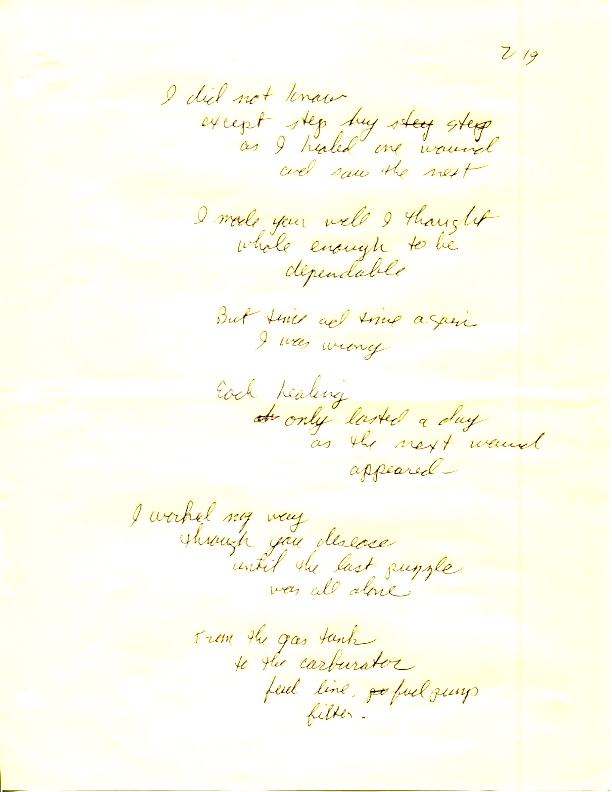 7/19
I did not know
except step by stey step
as I healed one wound
and saw the next
I made you well I thought
whole enough to be
dependable
But time ad time again
I was wrong
Each healing
only lasted a day
as the next wound
appeared—
I worked my way
through you disease
until the last puzzle
was all alone
From the gas tank
to the carburator
fuel line, fuel pump
filter.